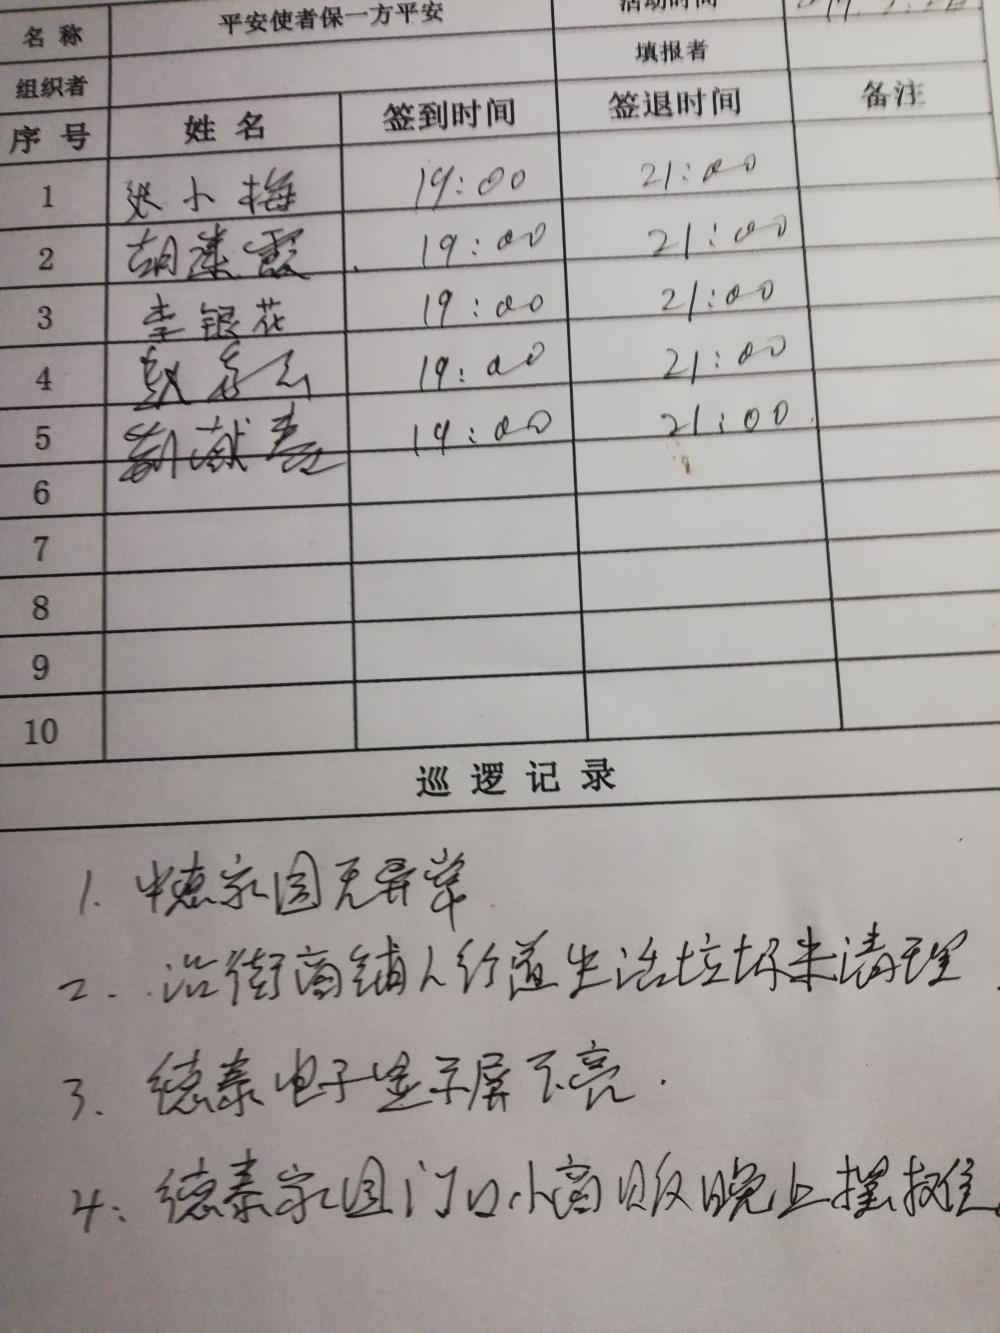 名 称 平安使者保一方平安 活动时间
组织者 填报者
序 号 姓 名 签到时间 签退时间 备注
1 张小梅 19:00 21:00
2 胡 霞 19:00 21:00
3 李银花 19:00 21:00
4 赵 19:00 21:00
5 献春 19:00 21:00
6
7
8
9
10
巡 逻 记 录
1. 中德家园无异常
2. 沿街商铺人行道生活垃圾未清理.
3. 德泰电子显示屏不亮.
4: 德泰家园门口小商贩晚上摆摊